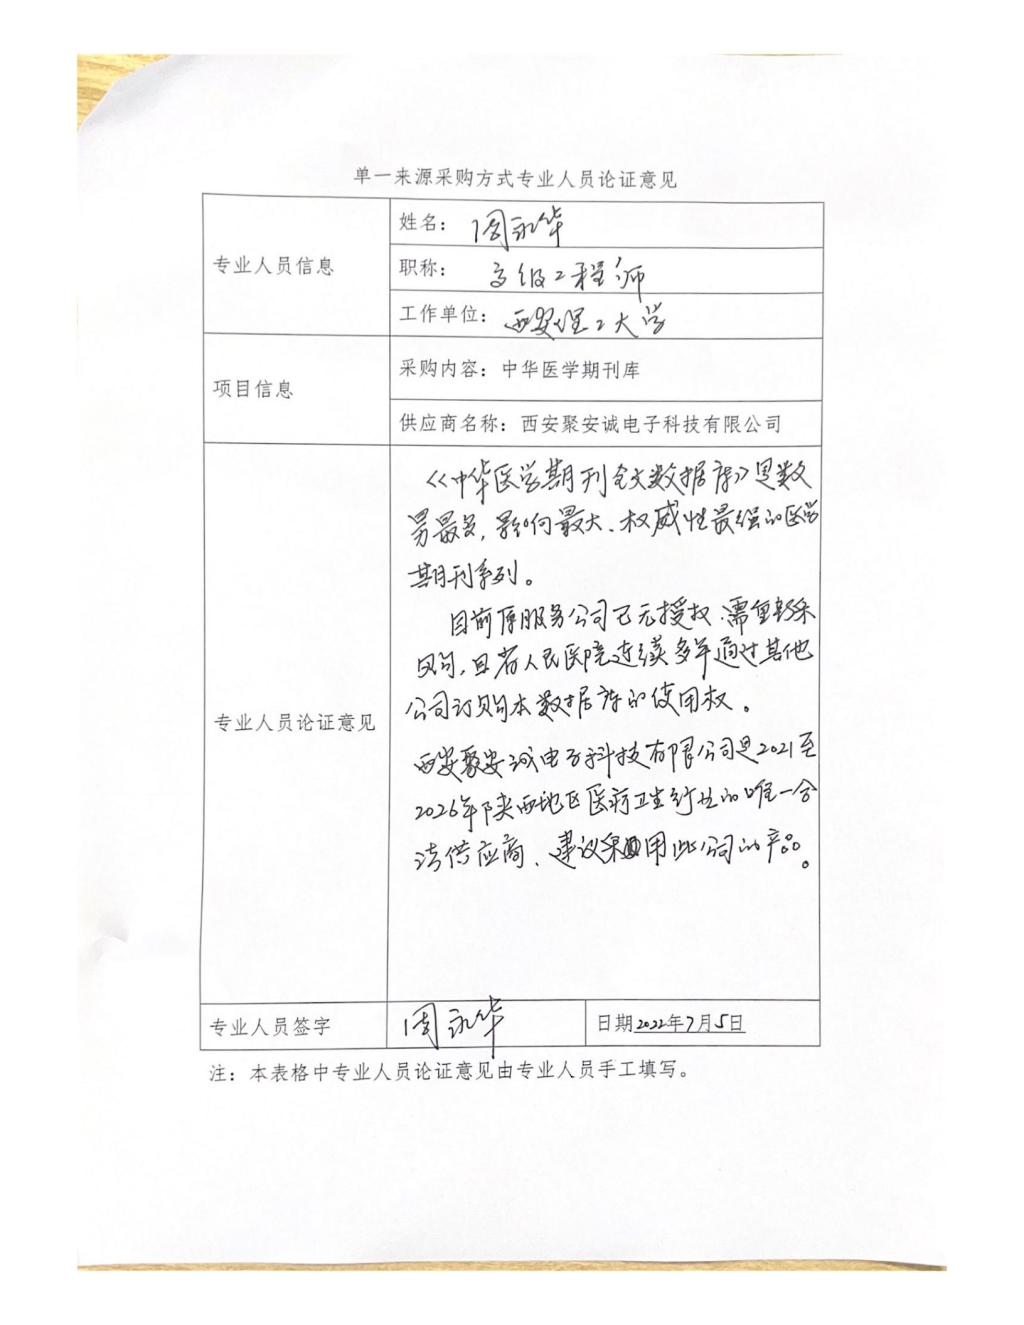 单一来源采购方式专业人员论证意见
专业人员信息
姓名：周永华
职称：高级工程师
工作单位：西安理工大学
项目信息
采购内容：中华医学期刊库
供应商名称：西安聚安诚电子科技有限公司
专业人员论证意见
《中华医学期刊全文数据库》是数
量最多，影响最大、权威性最强的医学
期刊系列。
目前原服务公司已无授权，需重新采
购，且省人民医院连续多年通过其他
公司订购本数据库的使用权。
西安聚安诚电子科技有限公司是2021至
2026年陕西地区医疗卫生行业的唯一合
法供应商、建议采用此公司的产品。
专业人员签字
周永华
日期2022年7月5日
注：本表格中专业人员论证意见由专业人员手工填写。